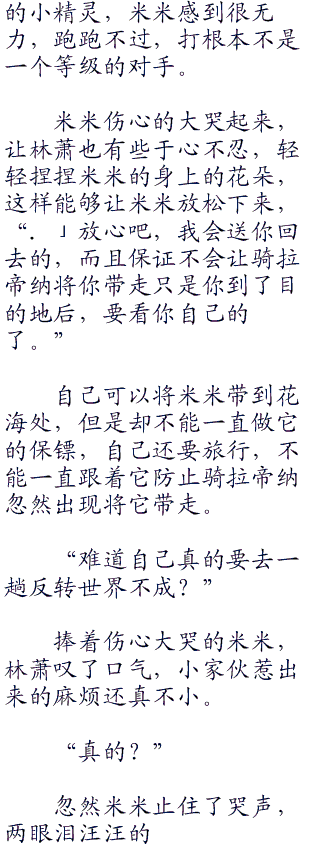 的小精灵，米米感到很无
力，跑跑不过，打根本不是
一个等级的对手。
米米伤心的大哭起来，
让林萧也有些于心不忍，轻
轻捏捏米米的身上的花朵，
这样能够让米米放松下来，
“．」放心吧，我会送你回
去的，而且保证不会让骑拉
帝纳将你带走只是你到了目
的地后，要看你自己的
了。”
自己可以将米米带到花
海处，但是却不能一直做它
的保镖，自己还要旅行，不
能一直跟着它防止骑拉帝纳
忽然出现将它带走。
“难道自己真的要去一
趟反转世界不成？”
捧着伤心大哭的米米，
林萧叹了口气，小家伙惹出
来的麻烦还真不小。
“真的？”
忽然米米止住了哭声，
两眼泪汪汪的